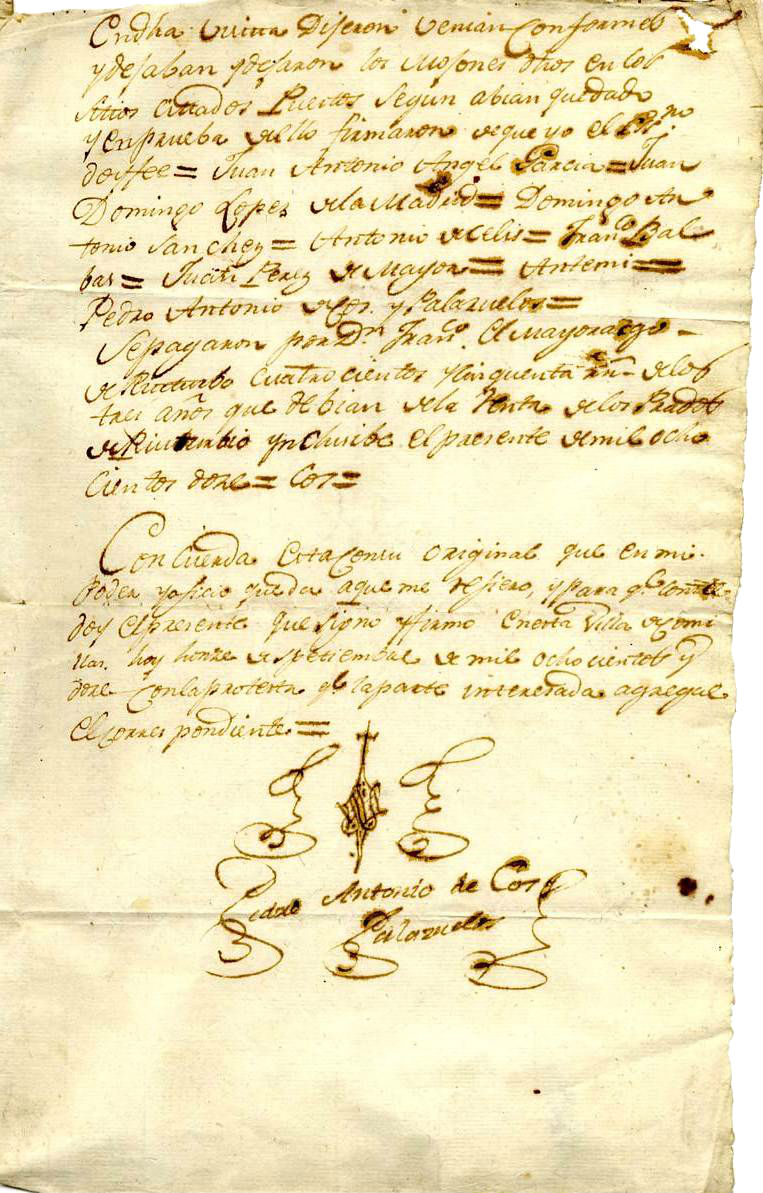 Endha vicita Diseron venian Conformes
y desaban y desaron los Mosones dhos en los
Sitios Cittados Puertos Segun abian quedado
y en prueba dello firmaron de que yo el Essno
doi fee = Juan Antonio Angel Garcia = Juan
Domingo Lopez de la Madrid = Domingo An
tonio Sanchez = Antonio de Celis = Franco Bal
bas = Juan Perez de Mayor = Antemi =
Pedro Antonio de Cos. y Palazuelos =
Se pagaron por Dn Franco. el Mayorazgo
de cuatro cientos y cinquenta rrs de los
tres años que debian de la Renta de los Prados
de ynclusibe el presente de mil ocho
cientos doze = Cos =
Concuerda Esta Con su original que en mi
Poder y oficio queda a que me refiero, y para qe conste
doy el presente que signo y firmo en esta Villa de Comi
llas. hoy honze de Septiembre de mil ochocientos y
doze Con la protexta qe la parte interesada agregue
el corres pondiente =
Pedro Antonio de Cos
Palazuelos